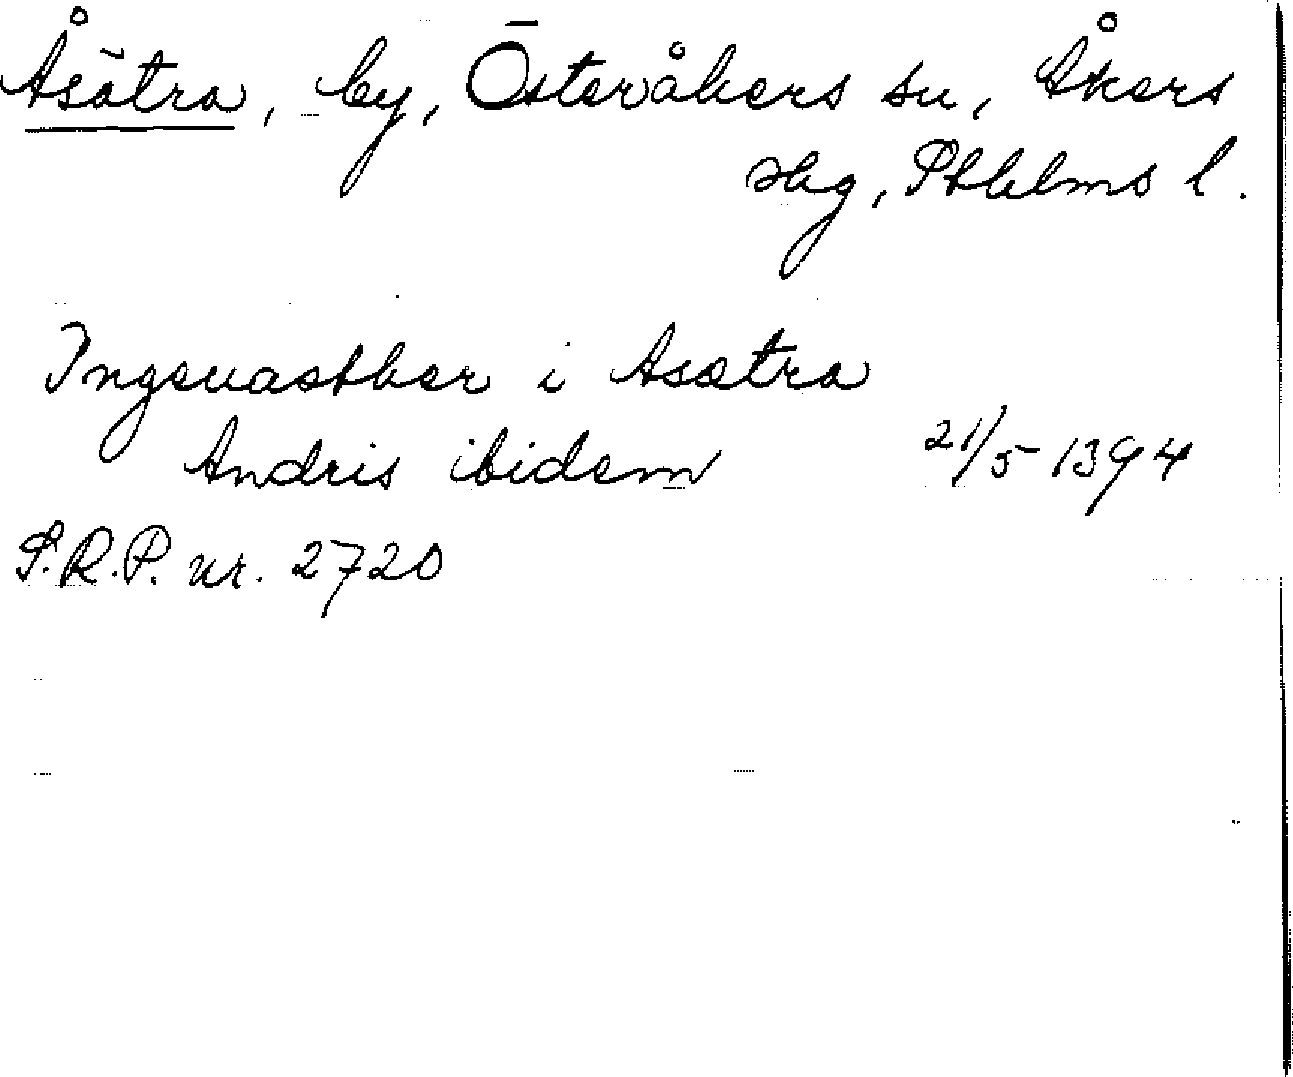 Åsätra, by, Österåkers sn, Åkers
skg, Sthlms l.
Ingeuastber i Asætra
Andris ibidem 21/5 1394
S.R.P. nr. 2720